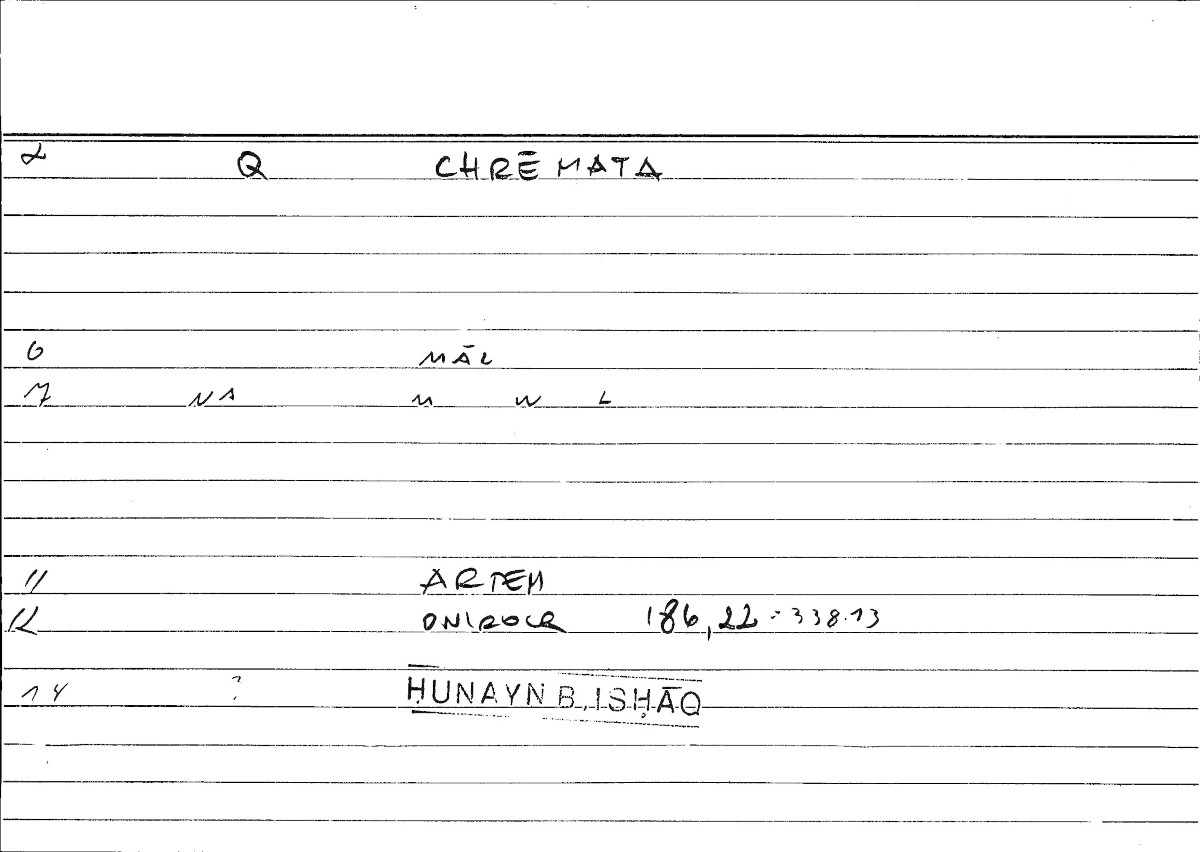 2 Q CHRĒMATA
6 MĀL
7 NA M W L
11 ARTEM
12 ONIROCR 186,22 = 338.13
14 ? ḤUNAYN B. ISḤĀQ